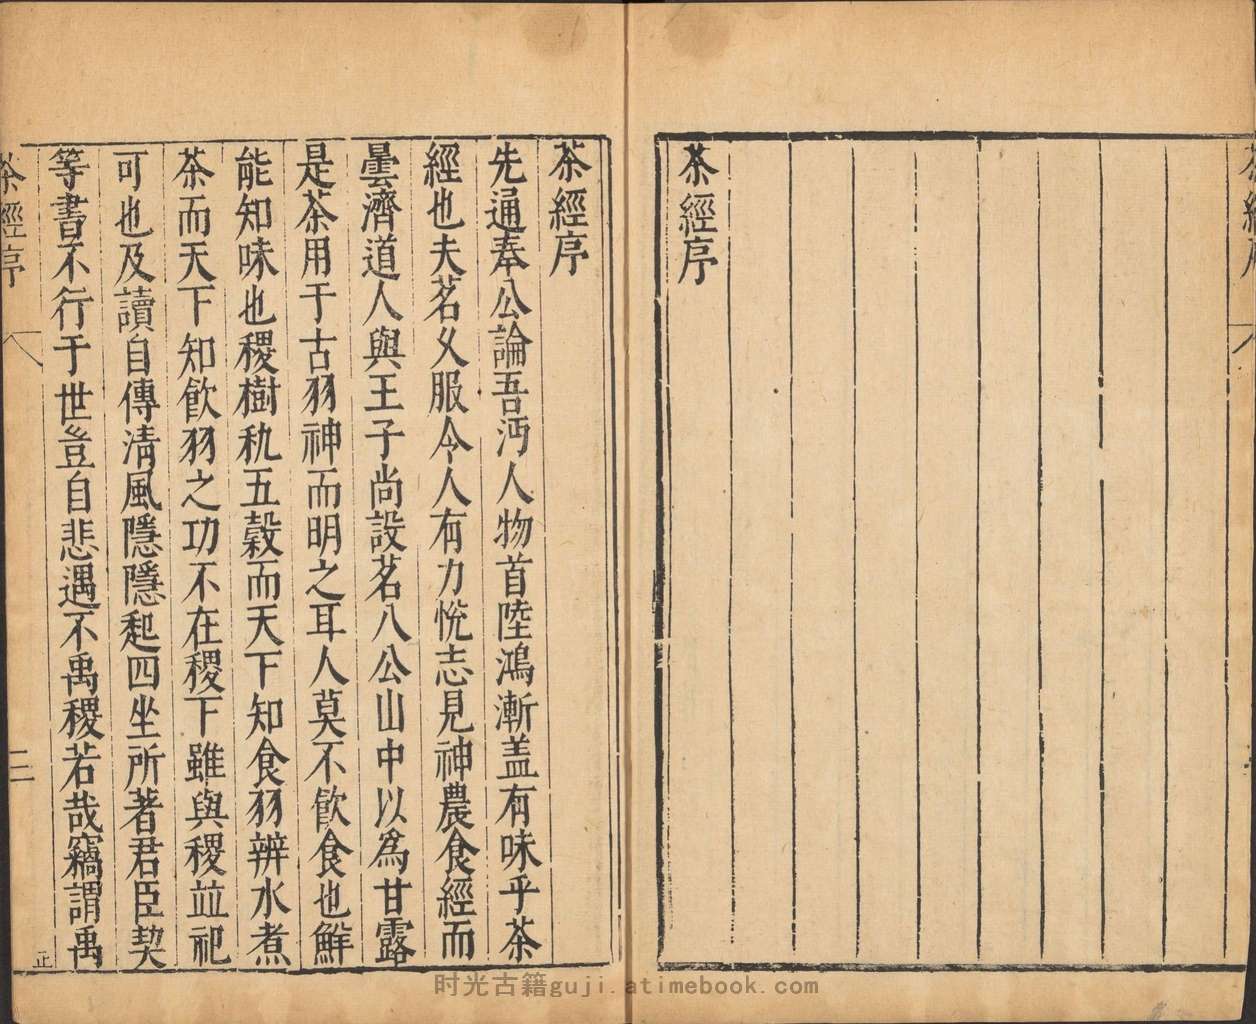 茶經序
茶經序
茶經序
先通奉公論吾沔人物首陸鴻漸盖有味乎茶
經也夫茗久服令人有力悅志見神農食經而
曇濟道人與王子尚設茗八公山中以為甘露
是茶用于古羽神而明之耳人莫不飲食也鮮
能知味也稷樹秇五穀而天下知食羽辨水煮
茶而天下知飲羽之功不在稷下雖與稷並祀
可也及讀自傳清風隱隱起四坐所著君臣契
等書不行于世豈自悲遇不禹稷若哉竊謂禹
茶經序
二
正
时光古籍guji.atimebook.com